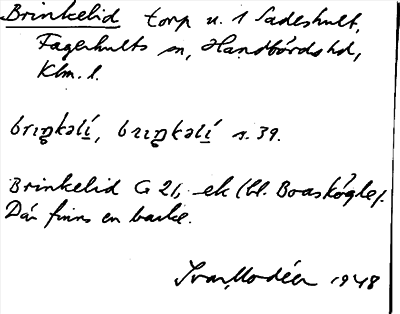 Brinkelid torp u. 1 Sadeshult,
Fagerhults sn, Handbörds hd,
Klm. l.
brıŋkəlí, brıŋkəlí s. 39.
Brinkelid G 21, ek (bl. Boaskögle).
Där finns en backe.
Ivar Modéer 1948